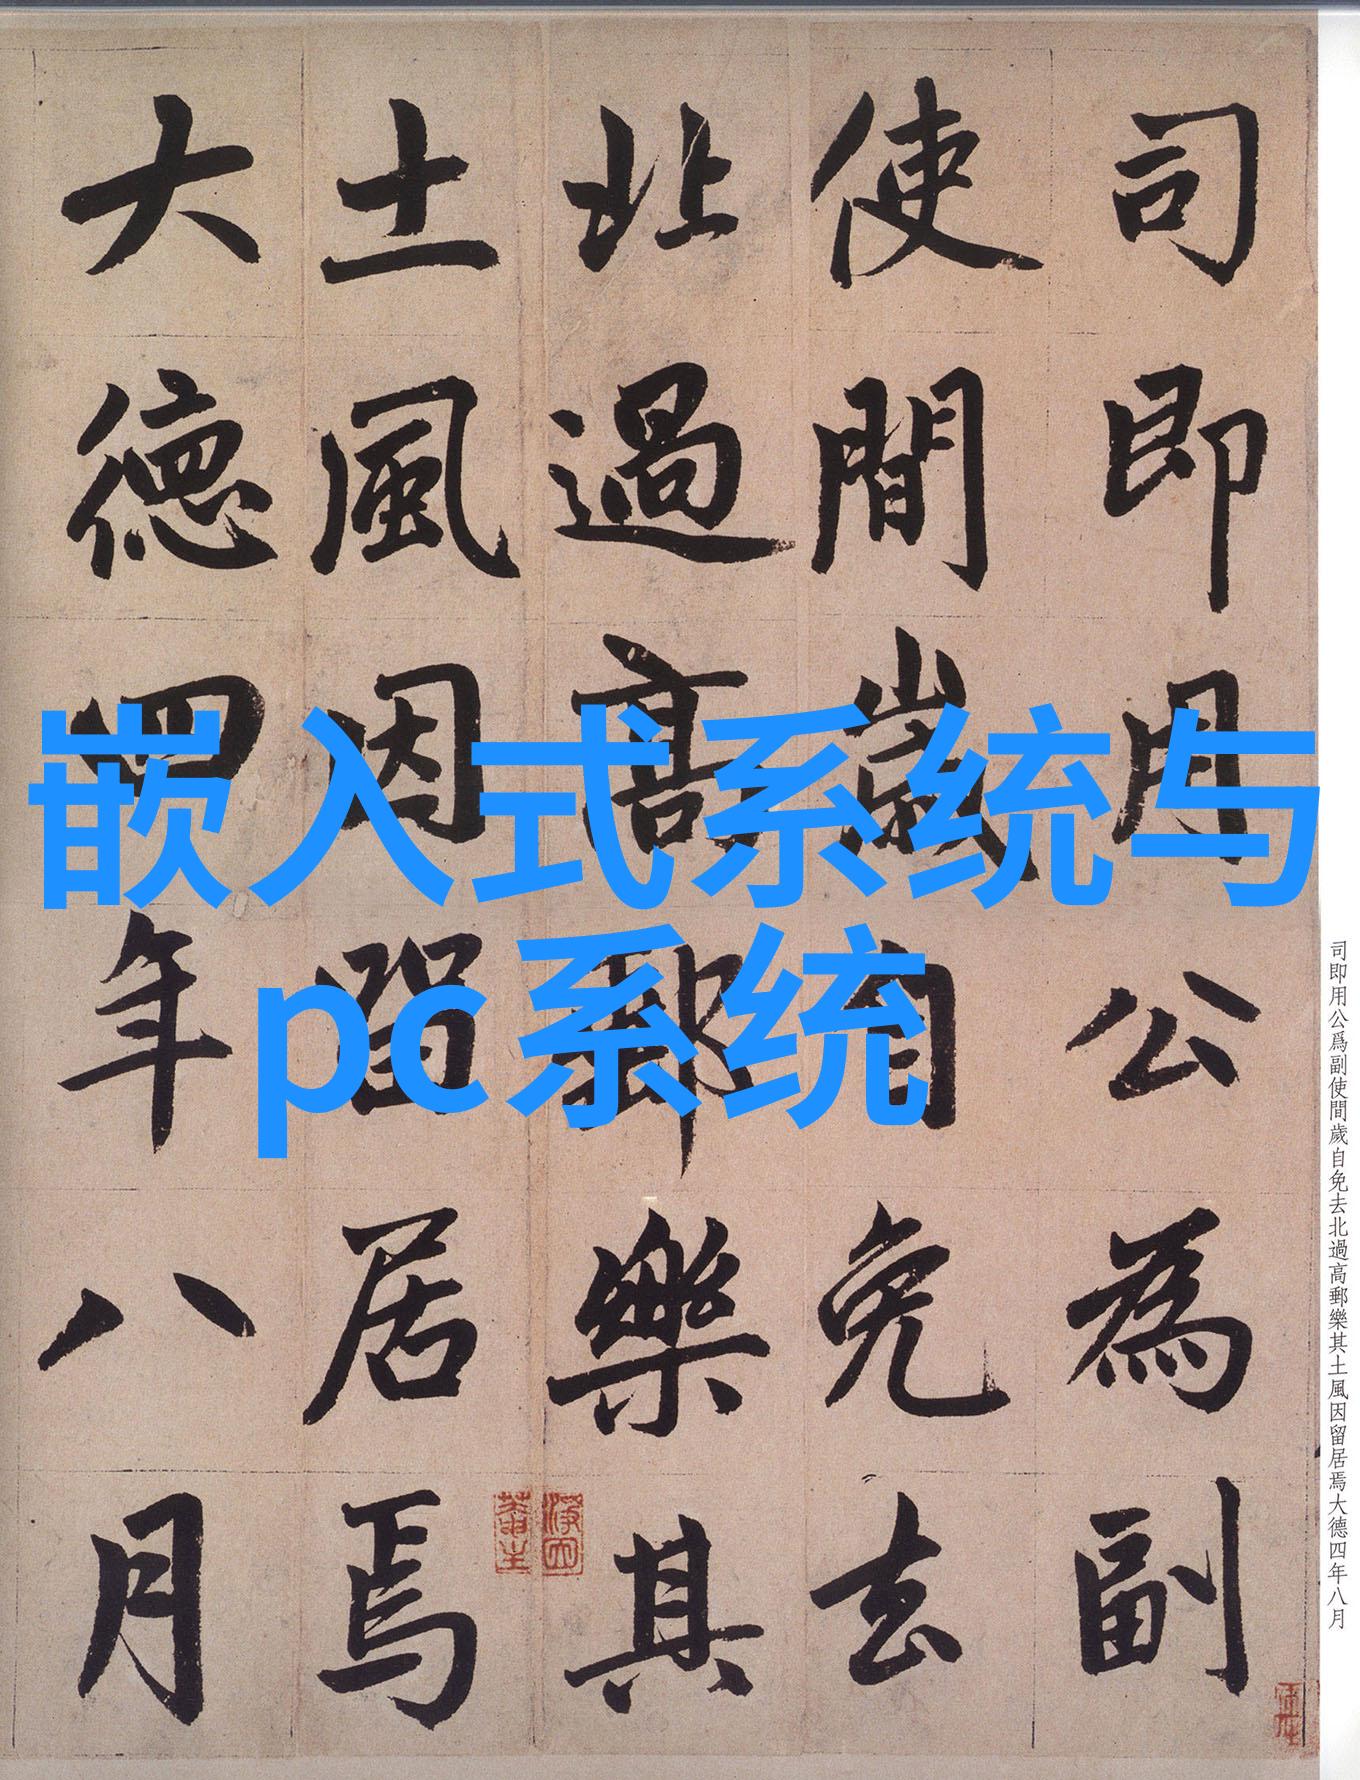 司即用公為副
使間歲自免去
北過高郵樂其
土風因留居焉
大德四年八月
嵌入式系统与
pc系统
司即用公爲副使間歲自免去北過高郵樂其土風因留居焉大德四年八月